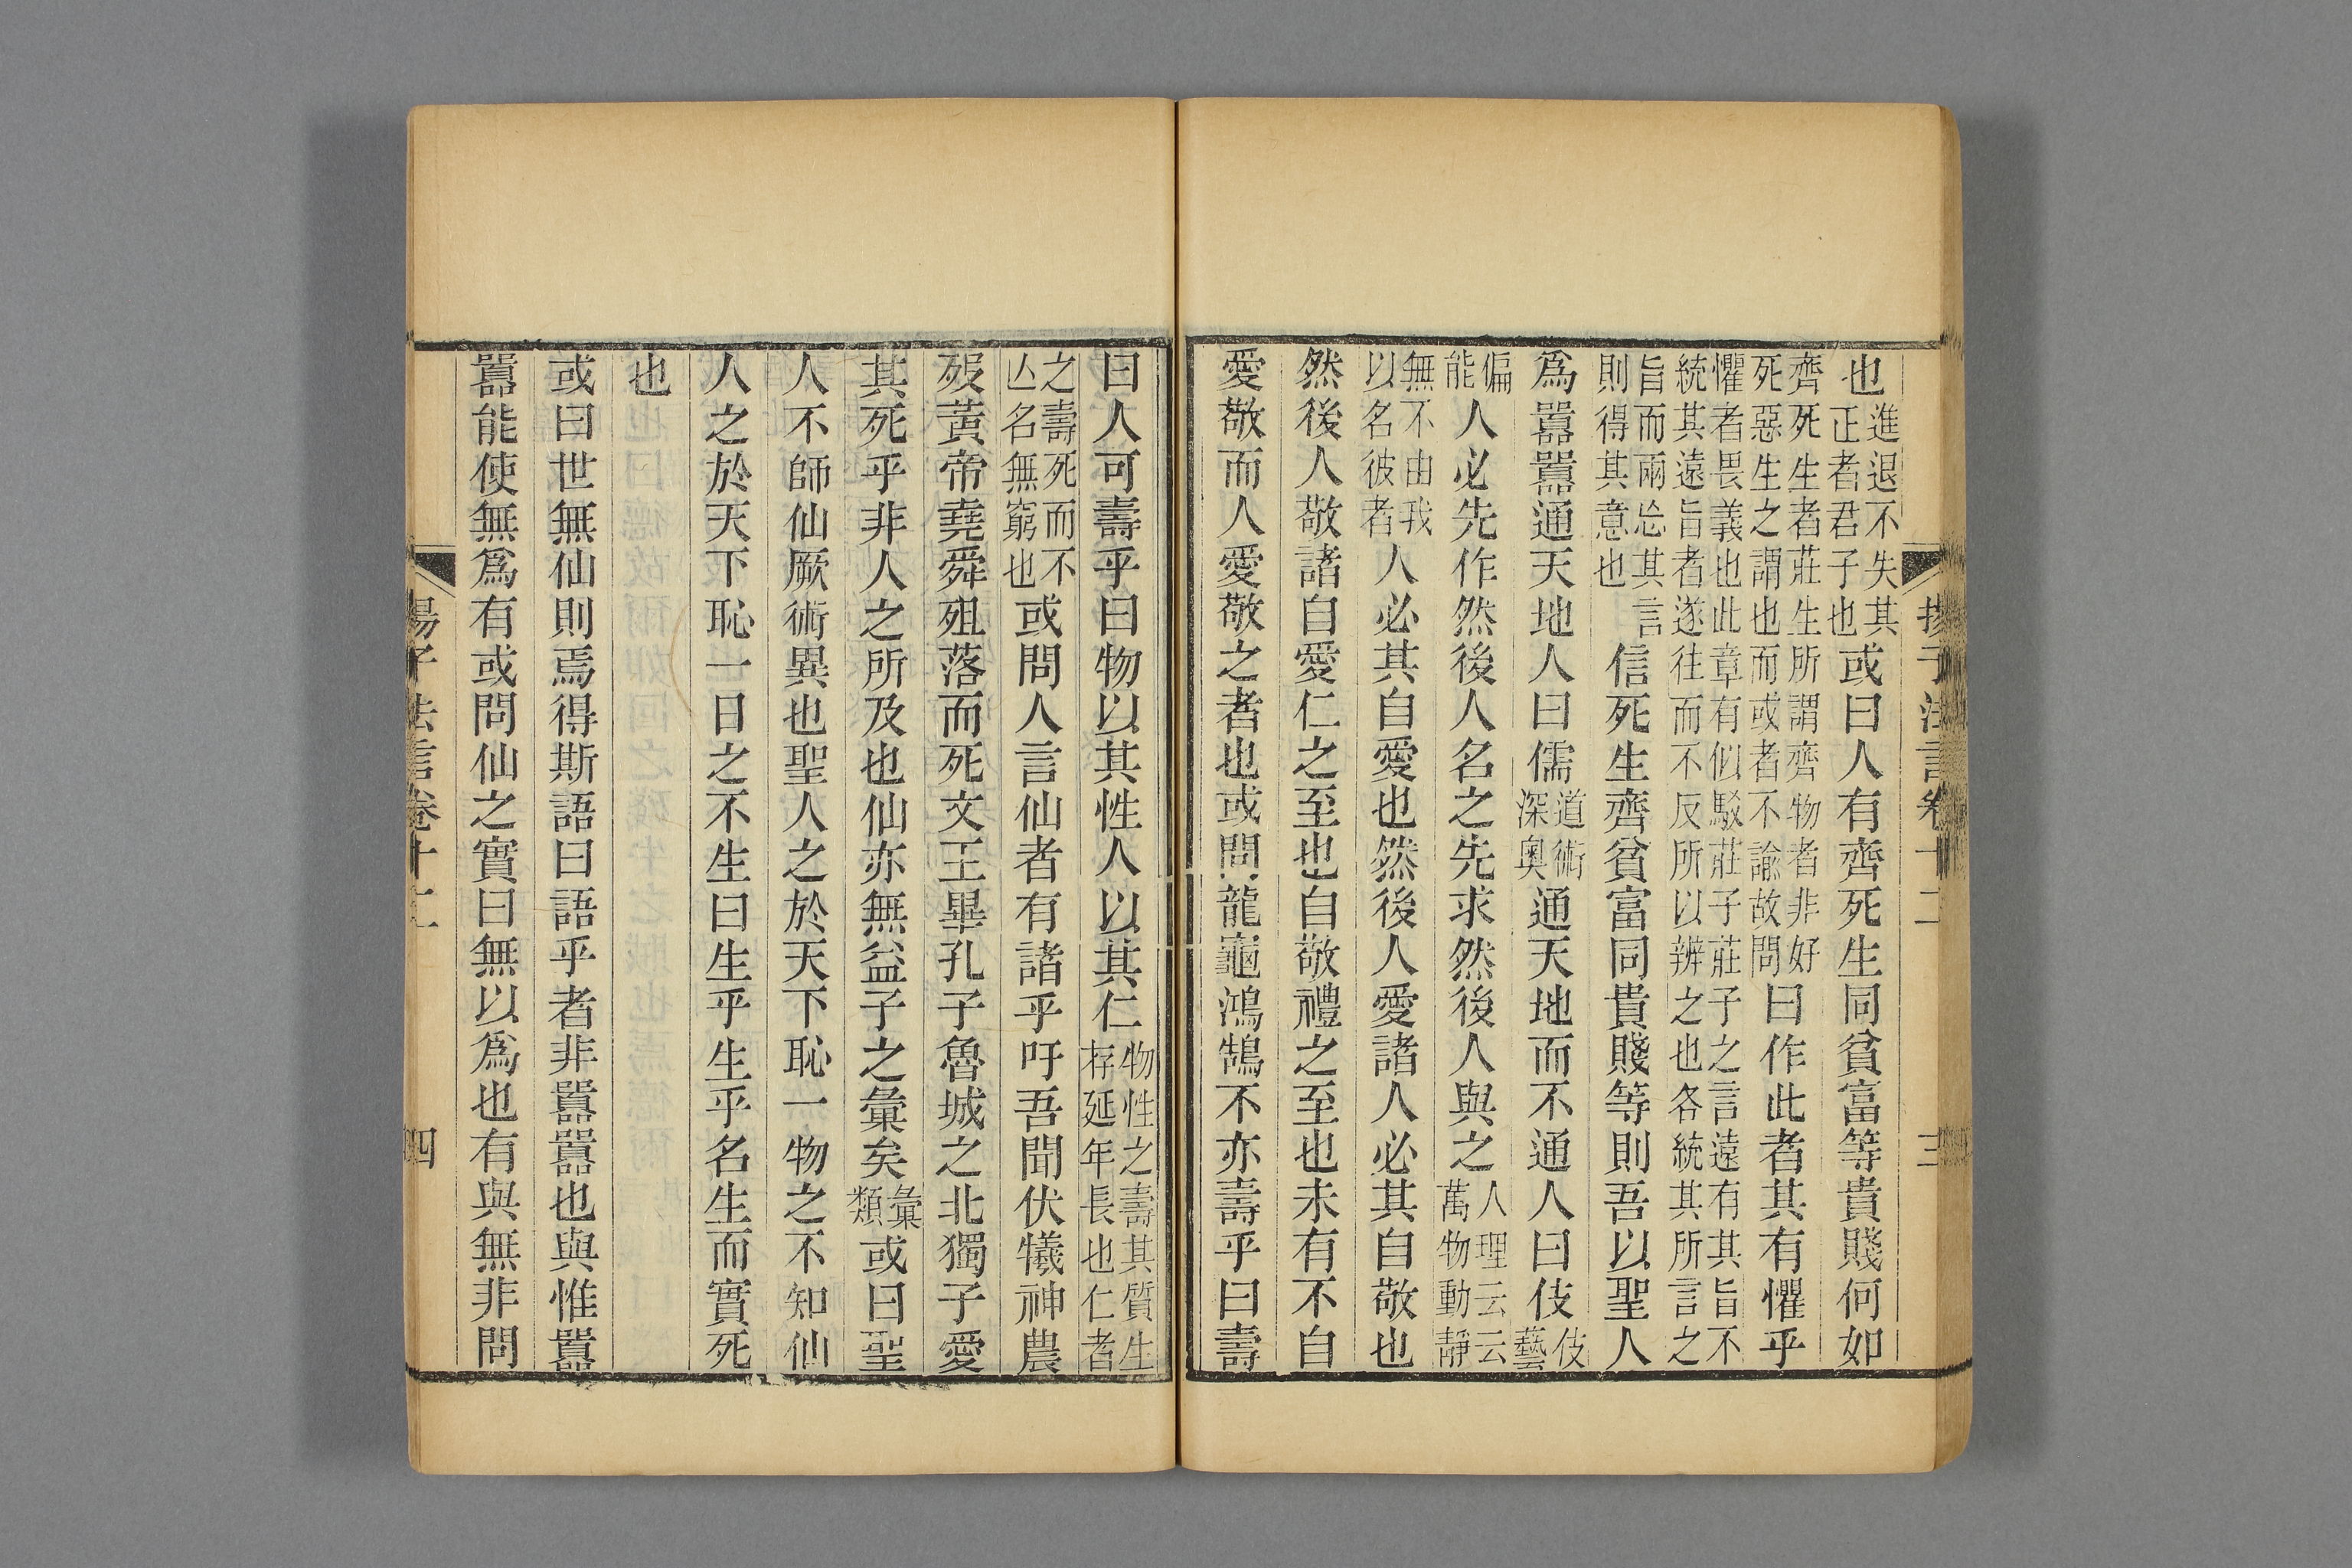 揚子法言卷十二 三
也進退不失其正者君子也或曰人有齊死生同貧富等貴賤何如
齊死生者莊生所謂齊物者非好死惡生之謂也而或者不諭故問曰作此者其有懼乎
懼者畏義也此章有似駁莊子莊子之言遠有其旨不統其遠旨者遂往而不反所以辨之也各統其所言之
旨而兩忘其言則得其意也信死生齊貧富同貴賤等則吾以聖人
爲囂囂通天地人曰儒道術深奧通天地而不通人曰伎伎藝
偏能人必先作然後人名之先求然後人與之人理云云萬物動靜
無不由我以名彼者人必其自愛也然後人愛諸人必其自敬也
然後人敬諸自愛仁之至也自敬禮之至也未有不自
愛敬而人愛敬之者也或問龍龜鴻鵠不亦壽乎曰壽
曰人可壽乎曰物以其性人以其仁物性之壽其質生存延年長也仁者
之壽死而不亾名無窮也或問人言仙者有諸乎吁吾聞伏犧神農
歿黃帝堯舜殂落而死文王畢孔子魯城之北獨子愛
其死乎非人之所及也仙亦無益子之彙矣彙類或曰聖
人不師仙厥術異也聖人之於天下恥一物之不知仙
人之於天下恥一日之不生曰生乎生乎名生而實死
也
或曰世無仙則焉得斯語曰語乎者非囂囂也與惟囂
囂能使無爲有或問仙之實曰無以爲也有與無非問
揚子法言卷十二 四